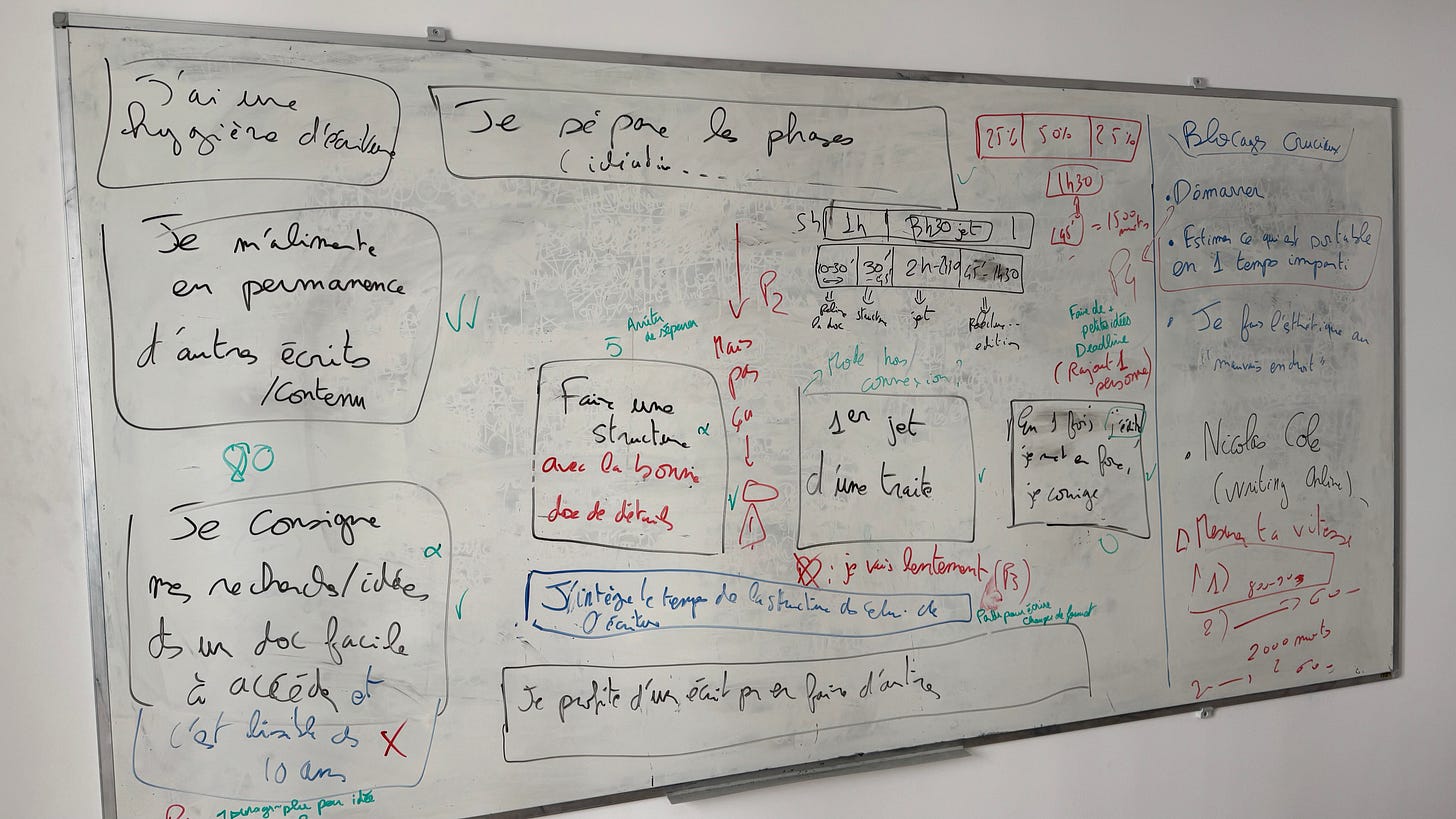 J'ai une
hygiène d'écriture
Je sépare les phases
(idéation....
25% 50% 25%
1h30
45' = 1500 mots
5h 1h 3h30 jet
10-30' 30'-45' 2h-2h30 45'-1h30
structure
jet
edition
Je m'alimente
en permanence
d'autres écrits
/Contenu
P2
Mais
pas
ça
5
Arrêter
de séparer
Faire une
structure α
avec la bonne
doc de détails
Mode hors
connexion?
1er jet
d'une traite
P4
Faire de +
petites idées
Deadline
(Rajout 1
personne)
En 1 fois j'édite
je met en forme,
je corrige
Je consigne
α
mes recherches/idées
ds un doc facile
à accéder et
c'est lisible ds X
10 ans
1 paragraphe par idée
: je vais lentement (P3)
J'intègre le temps de la structure ds celui de
l'écriture
Parler pour écrire
changer de format
Je profite d'un écrit pr en faire d'autres
Blocages cruciaux
• Démarrer
• Estimer ce qui est portable
en 1 temps imparti
• Je fais l'esthétique au
"mauvais endroit"
• Nicolas Cole
(Writing Online)
Mesurer ta vitesse
1)
2)
2000 mots